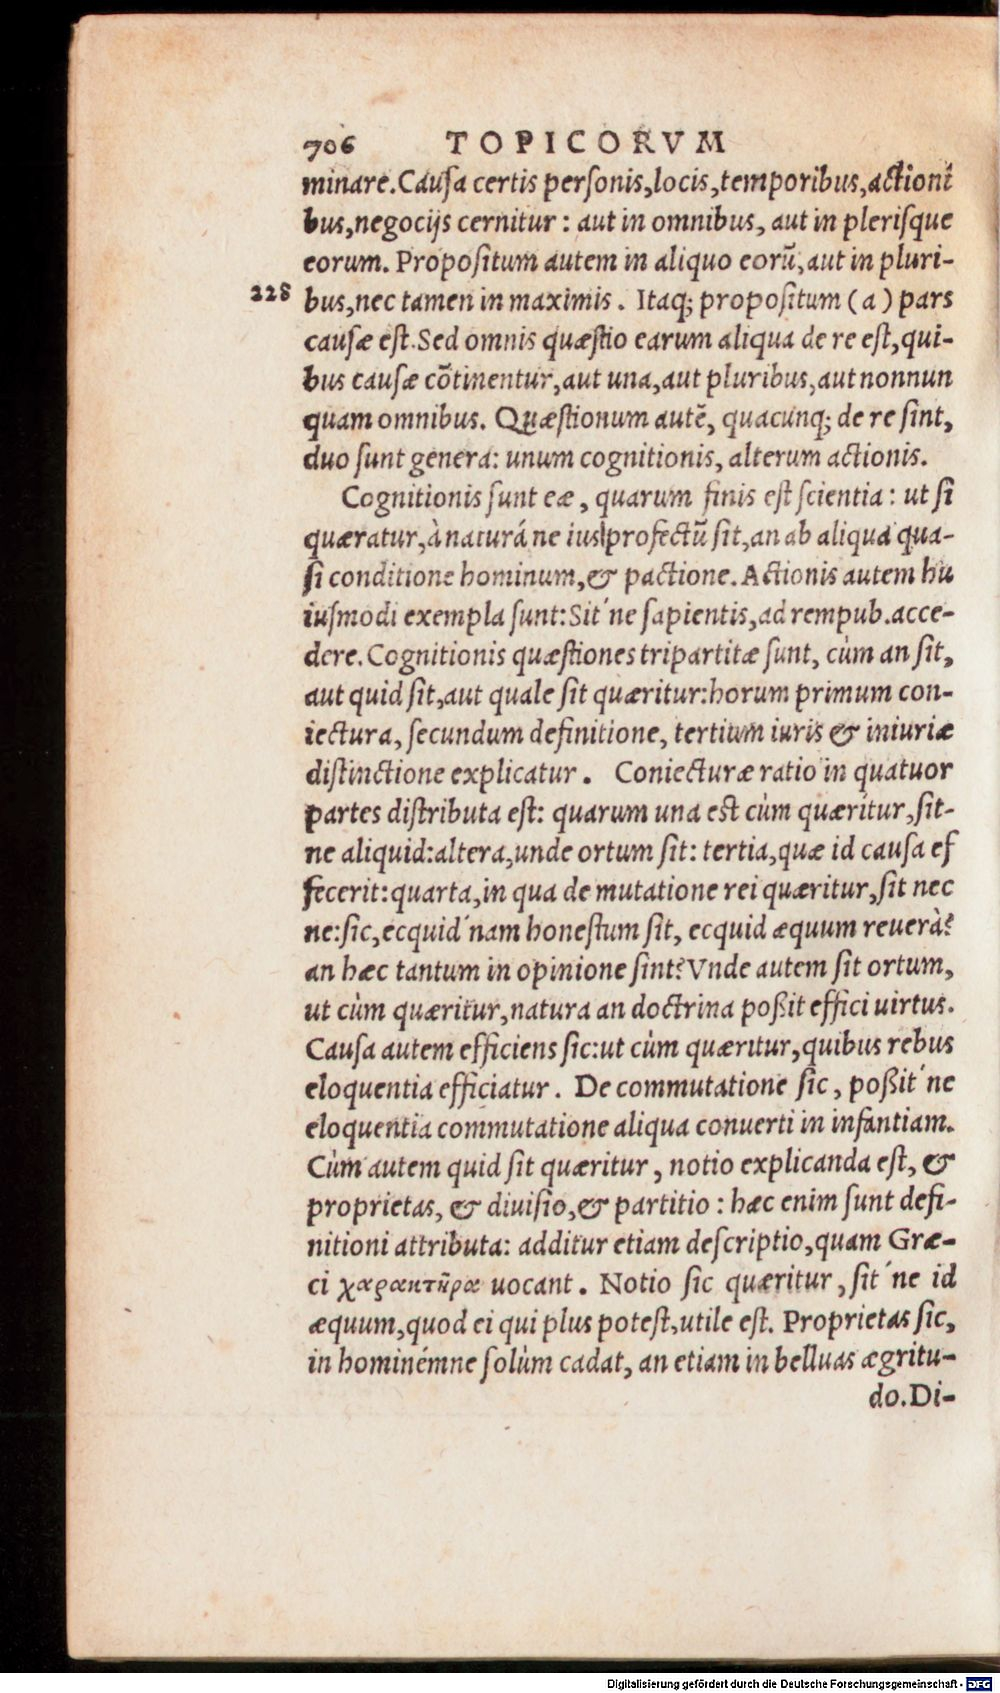 706 TOPICORVM
minare. Cauſa certis perſonis, locis, temporibus, actioni
bus, negocijs cernitur: aut in omnibus, aut in plerisque
eorum. Propoſitum autem in aliquo eorũ, aut in pluri-
228 bus, nec tamen in maximis. Itaq; propoſitum (a) pars
cauſæ eſt. Sed omnis quæſtio earum aliqua de re eſt, qui-
bus cauſæ cõtinentur, aut una, aut pluribus, aut nonnun
quam omnibus. Quæſtionum autẽ, quacunq; de re ſint,
duo ſunt genera: unum cognitionis, alterum actionis.
Cognitionis ſunt eæ, quarum finis eſt ſcientia: ut ſi
quæratur, à naturá ne ius profectũ ſit, an ab aliqua qua-
ſi conditione hominum, & pactione. Actionis autem hu
iuſmodi exempla ſunt: Sit´ne ſapientis, ad rempub. acce-
dere. Cognitionis quæſtiones tripartitæ ſunt, cùm an ſit,
aut quid ſit, aut quale ſit quæritur: horum primum con-
iectura, ſecundum definitione, tertium iuris & iniuriæ
diſtinctione explicatur. Coniecturæ ratio in quatuor
partes diſtributa eſt: quarum una eſt cùm quæritur, ſit-
ne aliquid: altera, unde ortum ſit: tertia, quæ id cauſa ef
fecerit: quarta, in qua de mutatione rei quæritur, ſit nec
ne: ſic, ecquid´nam honeſtum ſit, ecquid æquum reuerà?
an hæc tantum in opinione ſint? Vnde autem ſit ortum,
ut cùm quæritur, natura an doctrina poßit effici uirtus.
Cauſa autem efficiens ſic: ut cùm quæritur, quibus rebus
eloquentia efficiatur. De commutatione ſic, poßit´ne
eloquentia commutatione aliqua conuerti in infantiam.
Cùm autem quid ſit quæritur, notio explicanda eſt, &
proprietas, & diuiſio, & partitio: hæc enim ſunt defi-
nitioni attributa: additur etiam deſcriptio, quam Græ-
ci χαρακτῆρα uocant. Notio ſic quæritur, ſit´ne id
æquum, quod ei qui plus poteſt, utile eſt. Proprietas ſic,
in hominémne ſolùm cadat, an etiam in belluas ægritu-
do. Di-
Digitalisierung gefördert durch die Deutsche Forschungsgemeinschaft - DFG